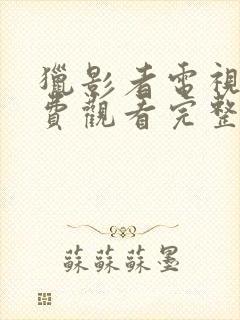 獵影者電視
費觀看完整
蘇蘇蘇墨